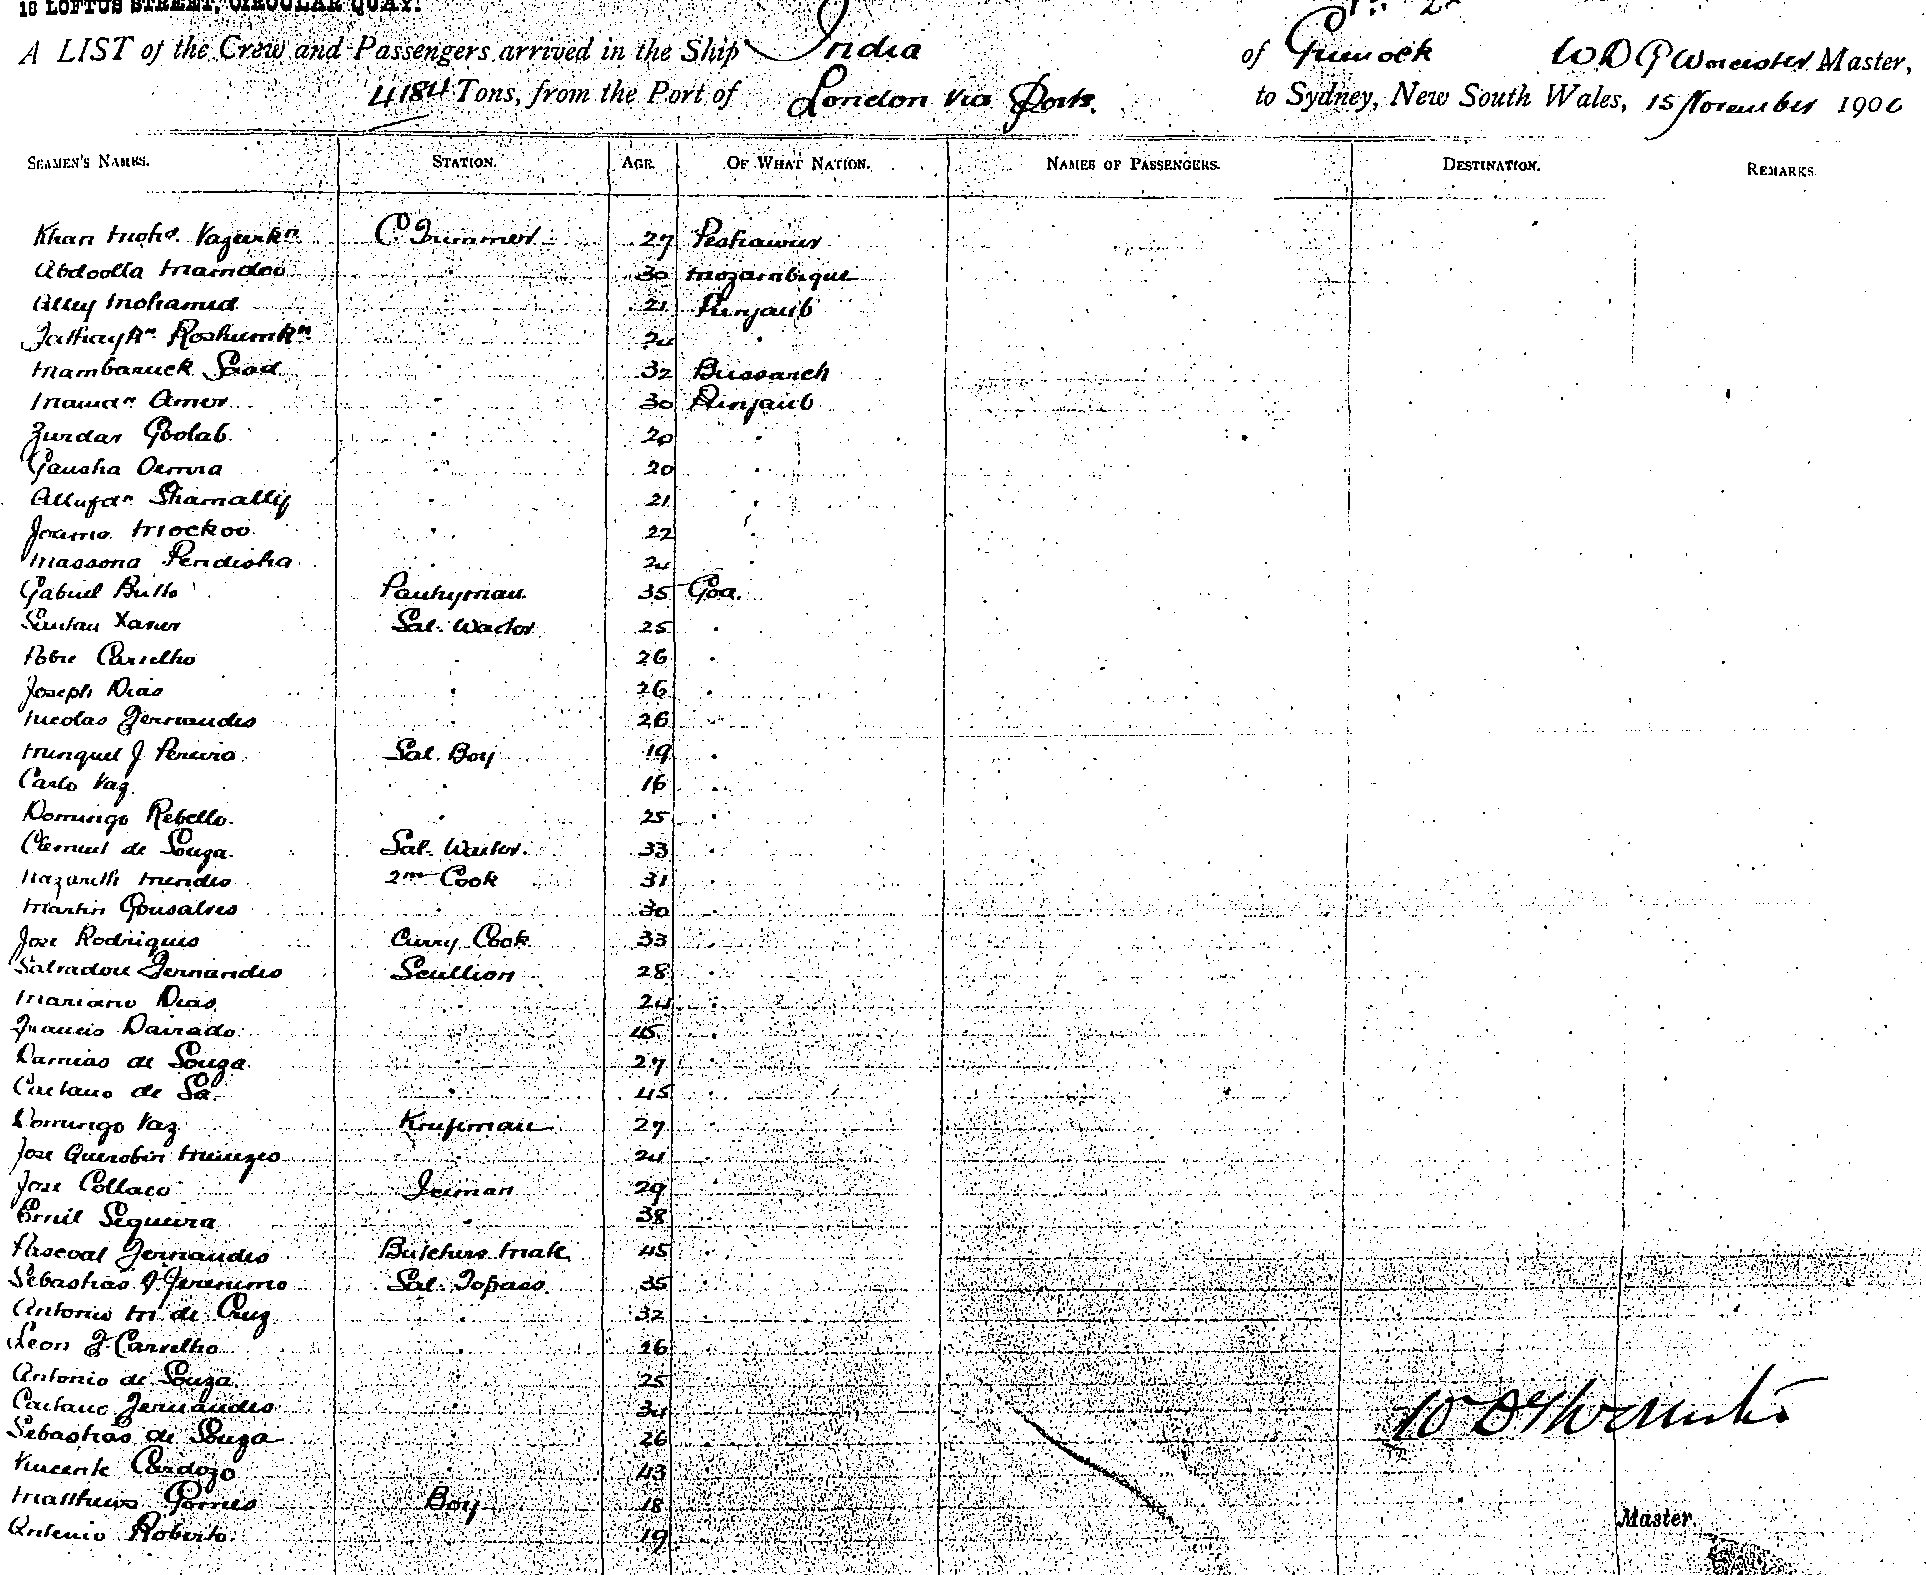 16 LOFTUS STREET, CIRCULAR QUAY.
A LIST of the Crew and Passengers arrived in the Ship India of Greenock W D G Worcester Master,
4184 Tons, from the Port of London via Ports. to Sydney, New South Wales, 15 November 190
SEAMEN'S NAMES. STATION. AGE. OF WHAT NATION. NAMES OF PASSENGERS. DESTINATION. REMARKS.
Khan Mohd. C. Trimmer 27 Peshawur
Abdoolla Mamdoo 30 Mozambique
Alley Mohamed 21 Punjaub
Roshumkn 24
Mambaruck Saad 32 Bussareh
Amer 30 Punjaub
Zurdar Goolab 20
Gausha 20
21
Mockoo 22
Massona Pendisha 24
Gabriel Britto Pantryman 35 Goa.
Santan Xavier Sal. Waiter 25
Pobre Carvelho 26
Joseph Dias 26
Nicolas Fernandes 26
Minguel J Pereira Sal. Boy 19
Carlo Vaz 16
Domingo Rebello 25
Clement de Souza Sal. Waiter 33
Nazareth Mendes 2nd Cook 31
Martin Gonsalves 30
Jose Rodrigues Curry Cook 33
Salvadore Fernandes Scullion 28
Mariano Dias 24
Francis Dairado 45
Damiao de Souza 27
Caetano de Sa 45
Domingo Vaz Knifeman 27
Jose Querobin Menezes 24
Jose Collaco Iceman 29
Emil Sequeira 38
Pascoal Fernandes Butchers Mate 45
Sebastiao J Jeronimo Sal. Topass 35
Antonio M de Cruz 32
Leon F Carvelho 26
Antonio de Souza 25
Caetano Fernandes 34
Sebastiao de Souza 26
Vincente Cardozo 43
Matthews Gomes Boy 18
Antonio Roberto 19
W D G Worcester
Master.